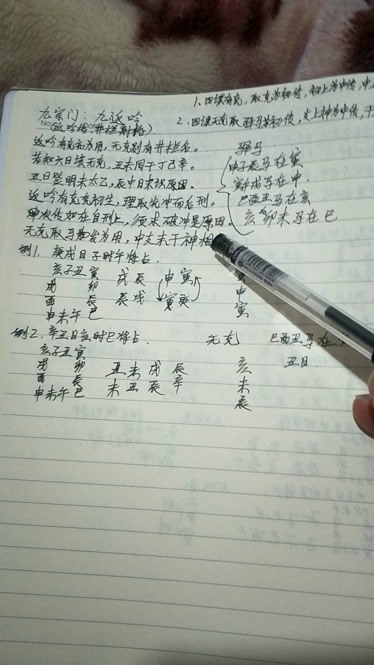 1、四课有克，取克为初传，初上为中传，中上
九宗门：九返吟
2、四课无克取驿马为初传，支上神为中传，干
(返吟格 井栏射格)
返吟有克亦为用，无克别有井栏名。
若知六日该无克，丑未同干丁己辛。
丑日登明未太乙，辰中日末识原因。
返吟有克克初生，理取先冲而后刑。
无克取马
驿马
申子辰马在寅
寅午戌马在申
巳酉丑马在亥
亥卯未马在巳
例1. 庚戌日子时午将占.
亥子丑寅 戌辰 申寅 寅
戌 卯 申
酉 辰 辰戌 寅庚 寅
申未午巳
例2. 辛丑日亥时巳将占. 无克 巳酉丑马在
亥子丑寅 亥 丑日
戌 卯 丑未戌辰 未
酉 辰 未丑辰辛 辰
申未午巳